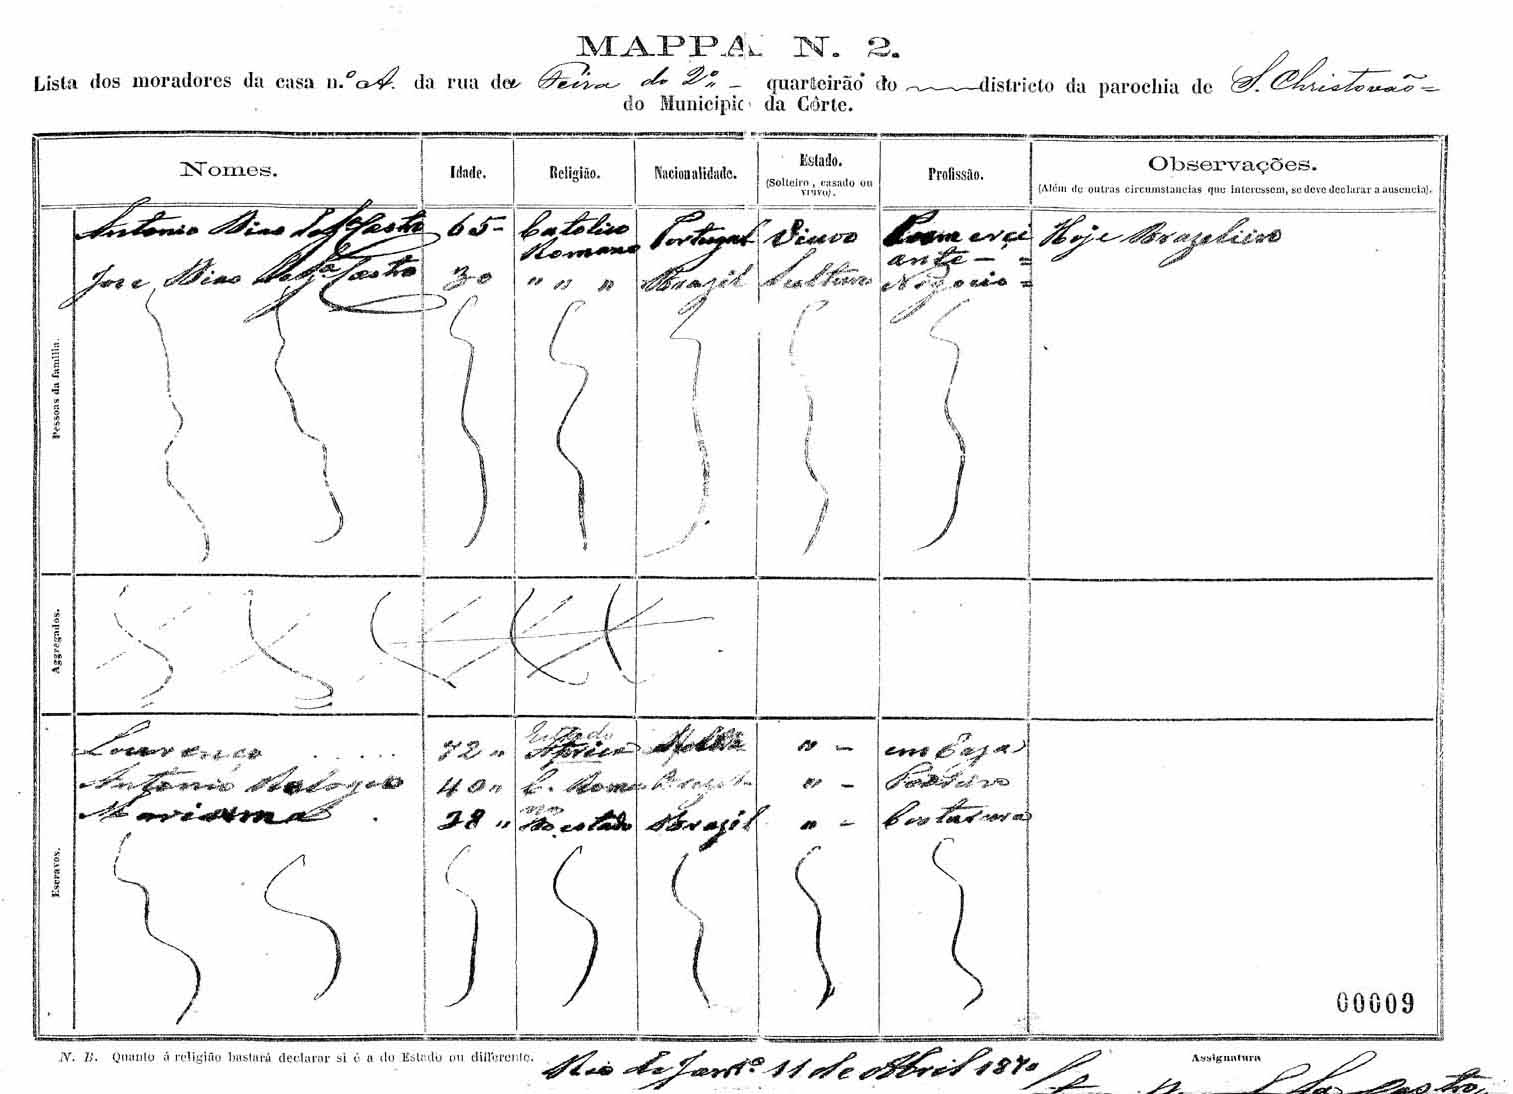 MAPPA N. 2.
Lista dos moradores da casa n.º A. da rua da Feira do 2º quarteirão do districto da parochia de S. Christovão
do Municipio da Côrte.
Nomes. Idade. Religião. Nacionalidade. Estado. (Solteiro, casado ou viuvo). Profissão. Observações. (Além de outras circumstancias que interessem, se deve declarar a ausencia).
Pessoas da familia.
Antonio Dias da Sª Castro 65 Catolico Romano Portugal Viuvo Comerciante Hoje Brazeleiro
Jose Dias da Sª Castro 30 " " " Brazil Solteiro Negocio
Aggregados.
Escravos.
Lourenço 72 " " em Caza
Antonio Relogio 40 " C. Romano Brazil "
Marianna 28 " Do estado Brazil " Costureira
00009
N. B. Quanto á religião bastará declarar si é a do Estado ou differente.
Rio de Janrº 11 de Abril 1870
Assignatura
Castro